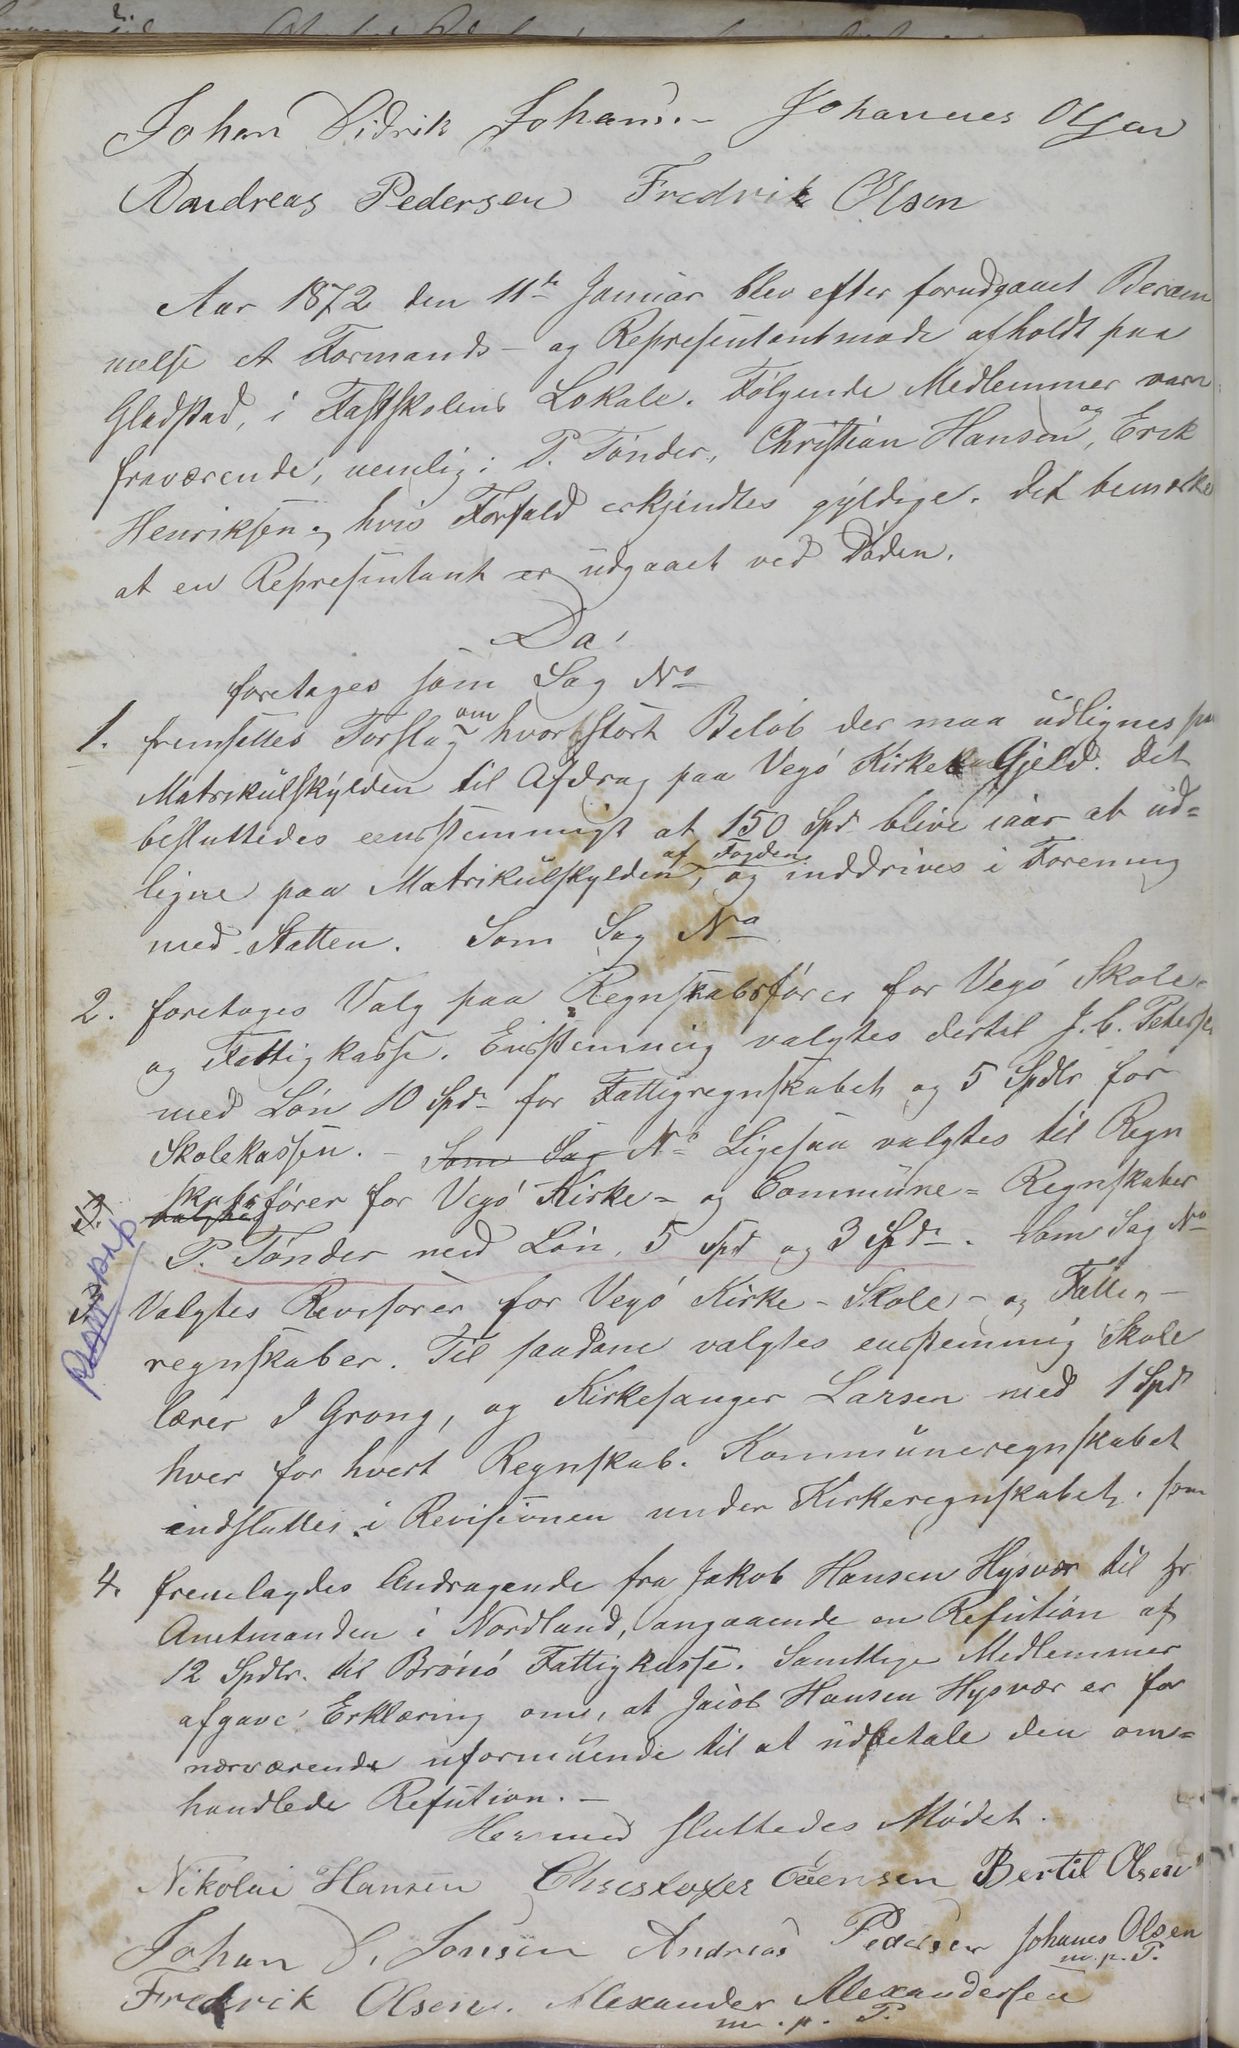 Johan Didrik Johans.- Johannes Olsen
Andreas Pedersen Fredrik Olsen
Aar 1872 den 11te Januar blev efter forudgaaet Beram
melse et Formands- og Repræsentantmøde afholdt paa
Gladstad, i Fastskolens Lokale. Følgende Medlemmer vare
fraværende, nemlig: P. Tønder, Christian Hansen og, Erik
Henriksen, hvis Forfald erkjendtes gyldige. Det bemærkes
at en Repræsentant er udgaaet ved Døden.
Da!
foretages som Sag No
1. fremsattes Forslag om hvor stort Beløb der maa udlignes paa
Matrikulskylden til Afdrag paa Vegø Kirkes Gjeld. Det
besluttedes eenstemmigt at 150 Spd blive iaar at ud=
ligne paa Matrikulskylden, af Fogden og inddrives i Forening
med Skatten. Som Sag No
2. foretoges Valg paa Regnskabsfører for Vegø Skole-
og Fattigkasse. Enstemmig valgtes dertil J. C. Peterse
med Løn 10 Spd for Fattigregnskabet og 5 Spdlr for
Skolekassen. - Som Sag No Ligesaa valgtes til Regn
skabsfører for Vegø Kirke- og Commune- Regnskaber
P. Tønder med Løn, 5 Spd og 3 Spd. Som Sag No
3. Valgtes Revisorer for Vegø Kirke- Skole- og Fattig-
Regnskap
regnskaber. Til saadane valgtes enstemmig Skole
lærer I Grong, og Kirkesanger Larsen med 1 Spd
hver for hvert Regnskab. Kommuneregnskabet
indsluttes i Revisionen under Kirkeregnskabet. som
4. fremlagdes Andragende fra Jakob Hansen Hysvær til Hr
Amtmanden i Nordland, angaaende en Refution af
12 Spdlr. til Brønø Fattigkasse. Samtlige Medlemmer
afgave Erklæring om, at Jacob Hansen Hysvær er for
nærværende uformuende til at udbetale den om=
handlede Refution. -
Hermed sluttedes Mødet.
Nikolai Hansen Christofer Evensen Bertil Olsen
Johan D. Jonsen Andreas Pedersen Johanes Olsen
m. p. P.
Fredrik Olsen. Alexander Alexandersen
m. p. P.